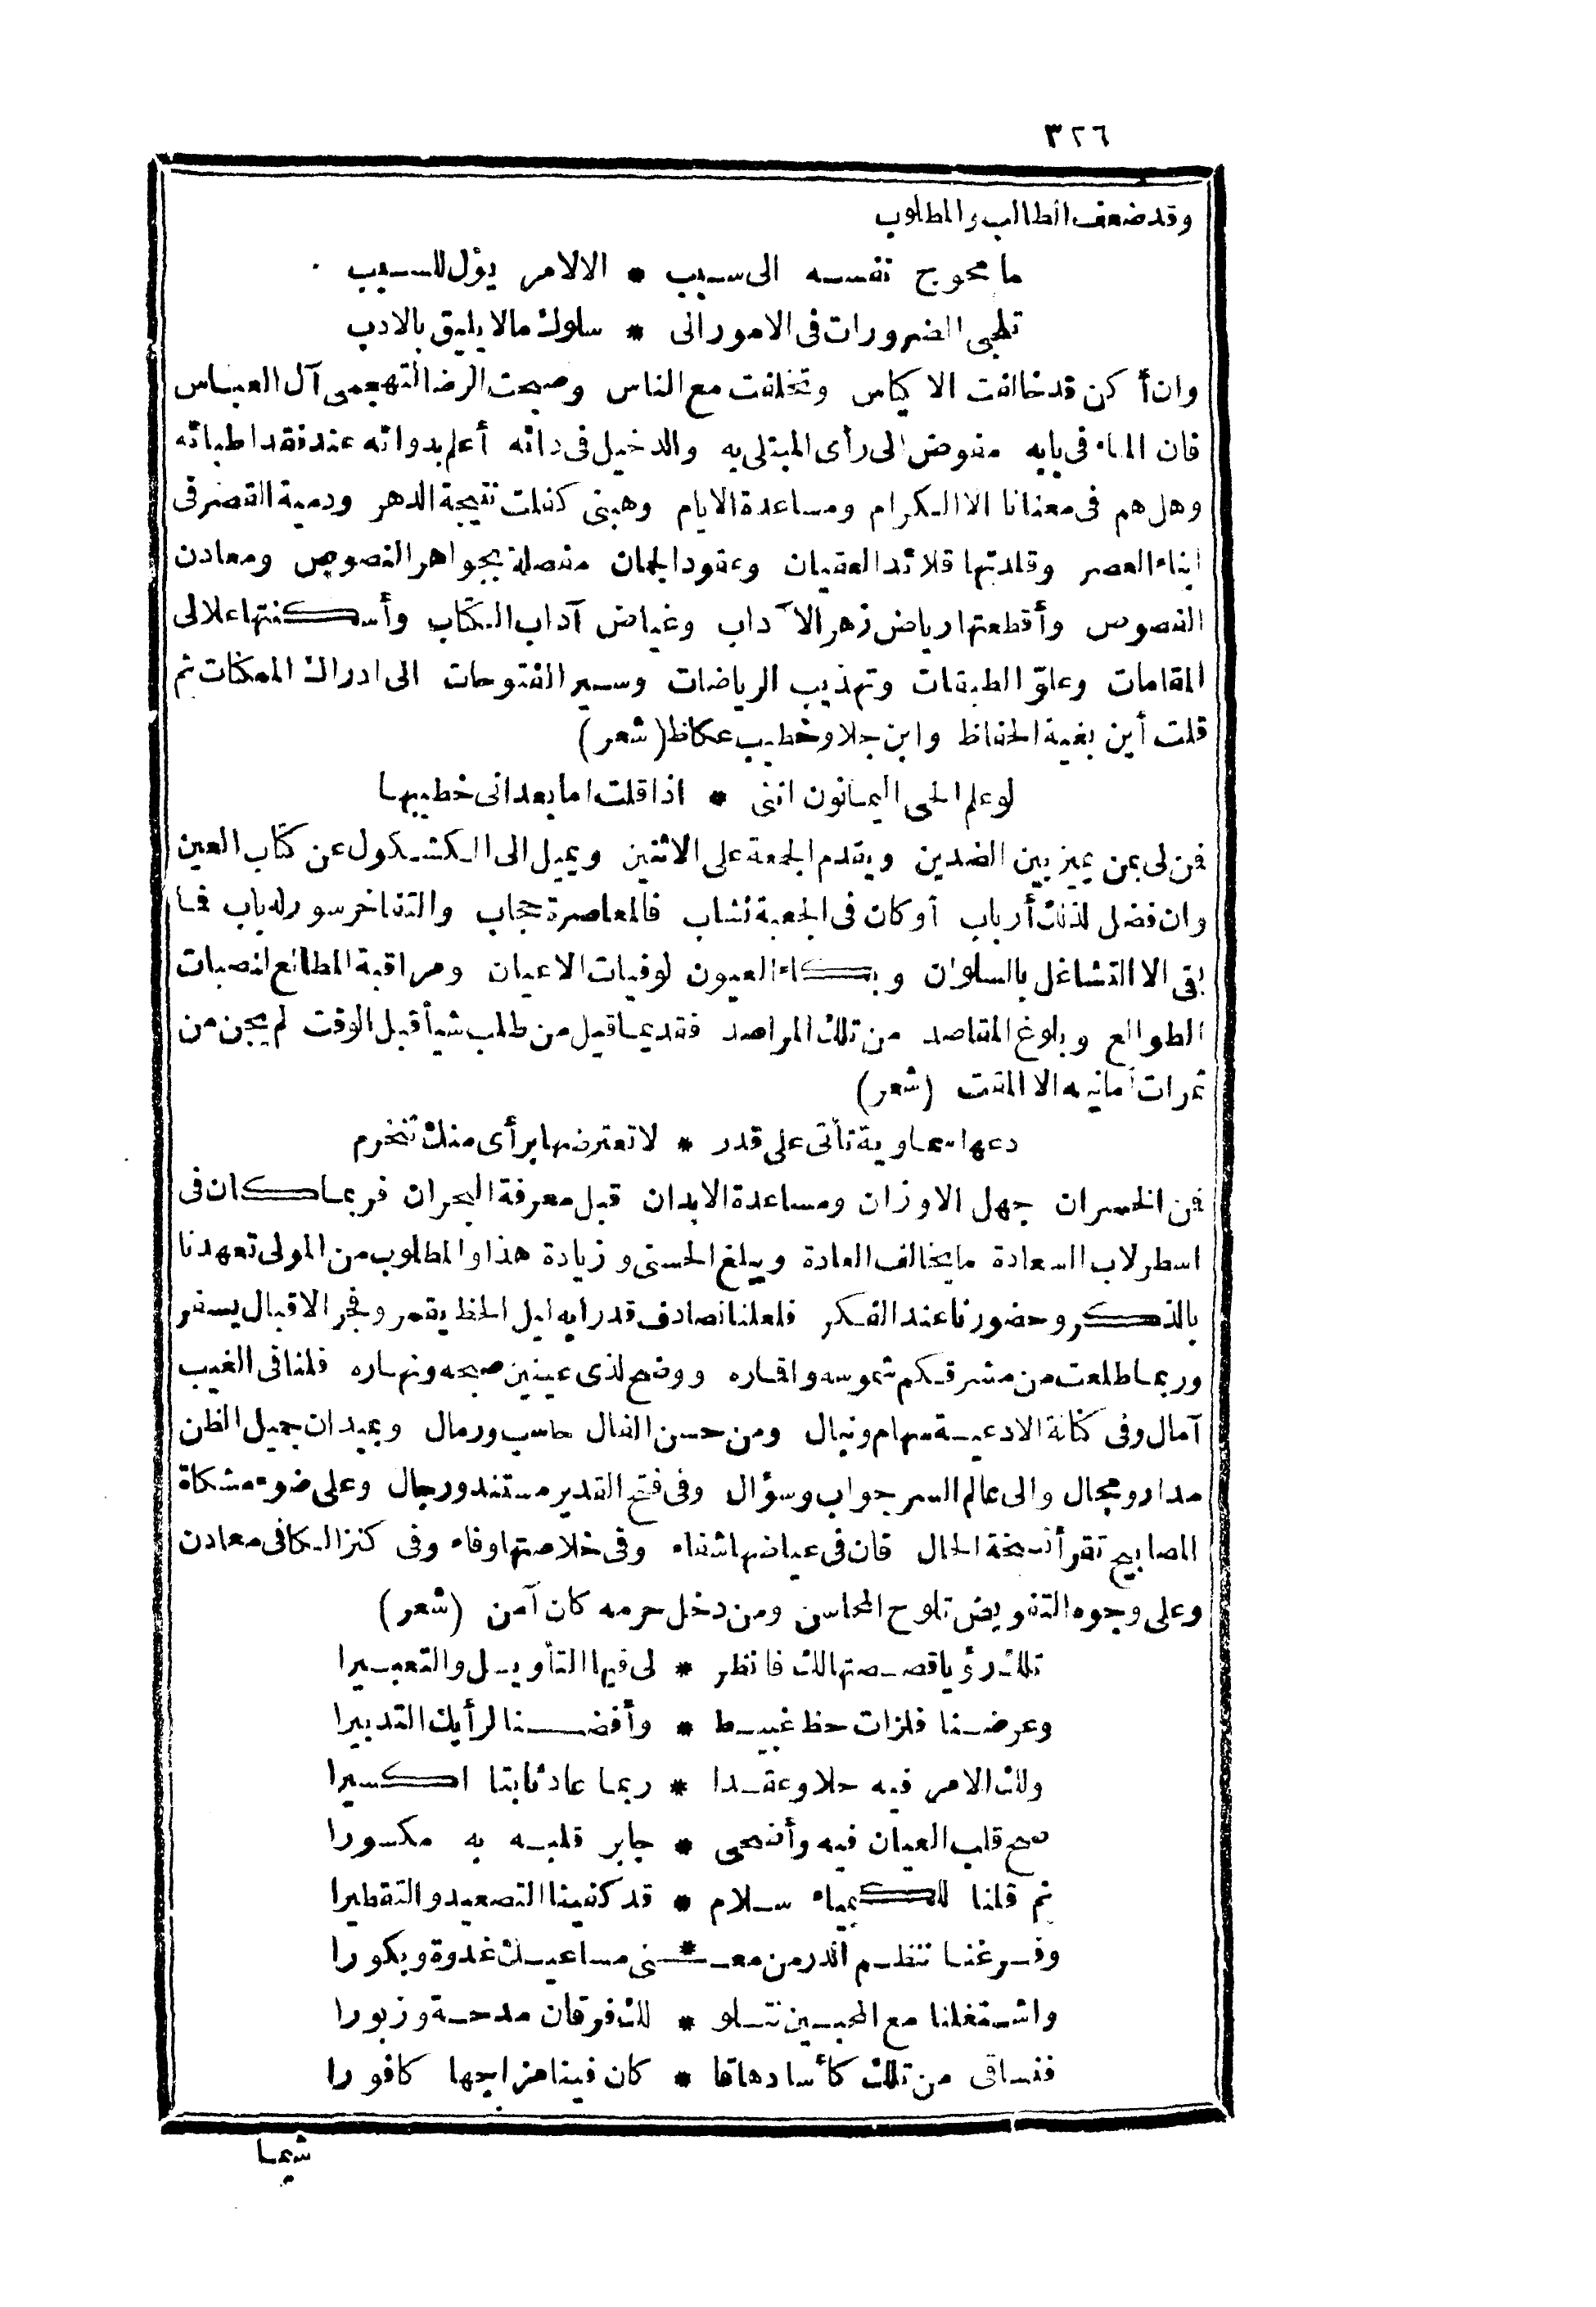 ٣٢٦
وقد ضعف الطالب والمطلوب
ما محوج نفسه الى سبب * الا لامر يؤل للسبب
تلجى الضرورات فى الامور الى * سلوك ما لا يليق بالادب
وان أكن قد خالفت الاكياس وتخلفت مع الناس وصبحت الرضا لتهجمى آل العباس
فان الماء فى بابه مفوض الى رأى المبتلى به والدخيل فى دائه أعلم بدوائه عند فقد اطبائه
وهل هم فى معنانا الا الكرام ومساعدة الايام وهبنى كفلت نتيجة الدهر ودمية القصر فى
ابناء العصر وقلدتها قلائد العقيان وعقود الجمان مفصلة بجواهر النصوص ومعادن
الفصوص وأقطعتها رياض زهر الآداب وغياض آداب الكتاب وأسكنتها علالى
المقامات وعلو الطبقات وتهذيب الرياضات وسير الفتوحات الى ادراك الممكنات ثم
قلت أين بغية الحفاظ وابن جلا وخطيب عكاظ (شعر)
لو علم الحى اليمانون اننى * اذا قلت اما بعد انى خطيبها
فمن لى بمن يميز بين الضدين ويقدم الجمعة على الاثنين ويميل الى الكشكول عن كتاب العين
وان فضل لذلك أرباب أو كان فى الجعبة نشاب فالمعاصرة حجاب والتفاخر سور له باب فما
بقى الا التشاغل بالسلوان وبكاء العيون لوفيات الاعيان ومراقبة المطالع لنصبات
الطوالع وبلوغ المقاصد من تلك المراصد فقديما قيل من طلب شيأ قبل الوقت لم يجن من
ثمرات أمانيه الا المقت (شعر)
دعها سماوية تأتى على قدر * لا تعترضها برأى منك تنخرم
فمن الخسران جهل الاوزان ومساعدة الابدان قبل معرفة البحران فربما كان فى
اسطرلاب السعادة ما يخالف العادة ويبلغ الحسنى وزيادة هذا والمطلوب من المولى تعهدنا
بالذكر وحضورنا عند الفكر فلعلنا نصادف قدرا به ليل الحظ يقمر وفجر الاقبال يسفر
وربما طلعت من مشرقكم شموسه واقماره ووضح لذى عينين صبحه ونهاره فلنا فى الغيب
آمال وفى كنانة الادعية سهام ونبال ومن حسن الفال حاسب ورمال وبميدان جميل الظن
مدار ومجال والى عالم السر جواب وسؤال وفى فتح القدير مستند ورجال وعلى ضوء مشكاة
المصابيح تقرأ نسخة الحال فان فى عياضها شفاء وفى خلاصتها وفاء وفى كنز الكافى معادن
وعلى وجوه التفويض تلوح المحاسن ومن دخل حرمه كان آمن (شعر)
تلك رؤيا قصصتها لك فانظر * لى فيها التأويل والتعبيرا
وعرضنا فلزات حظ غبيط * وأفضنا لرأيك التدبيرا
ولك الامر فيه حلا وعقدا * ربما عاد ثابتا اكسيرا
صح قلب العيان فيه وأضحى * جابر قلبه به مكسورا
ثم قلنا للكيمياء سلام * قد كفينا التصعيد والتقطيرا
وفرغنا ننظم الدر من معـ*ـنى مساعيك غدوة وبكورا
واشتغلنا مع المحبين نتلو * لك فرقان مدحة وزبورا
فنساقى من تلك كأسا دهاقا * كان فينا مزاجها كافورا
شيما